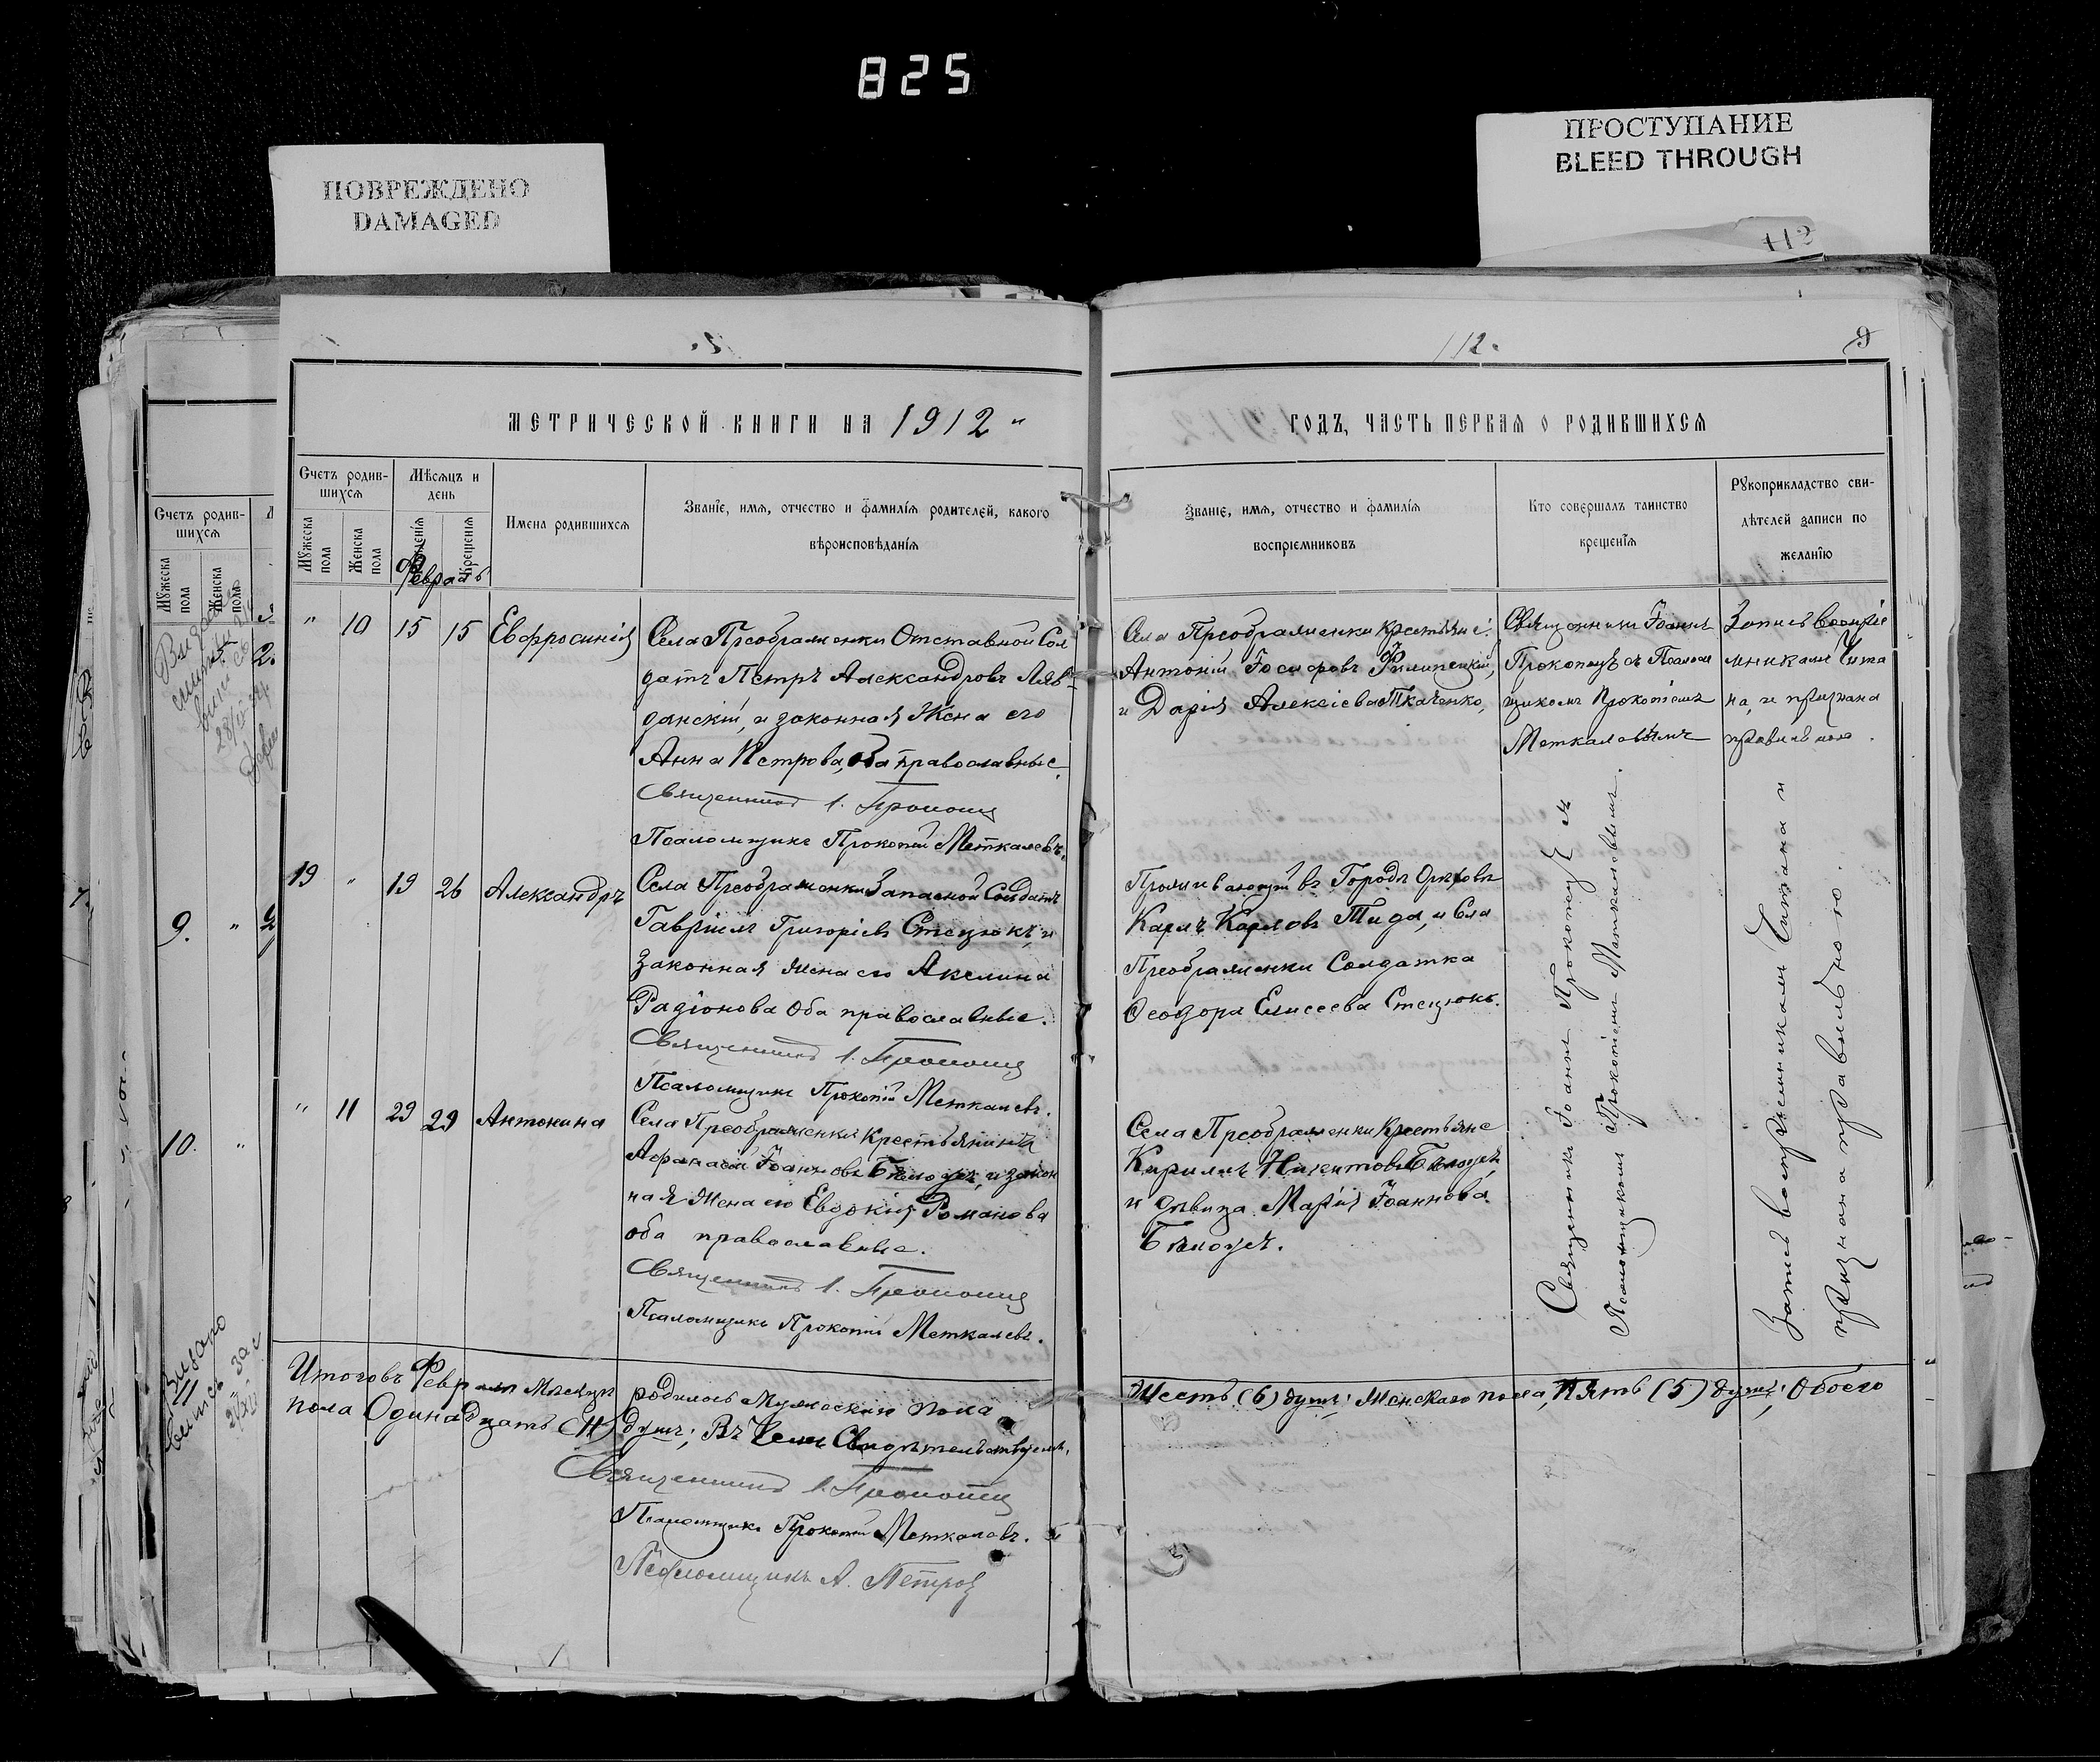 825
ПОВРЕЖДЕНО
DAMAGED
ПРОСТУПАНИЕ
BLEED THROUGH
112
112.
9
МЕТРИЧЕСКОЙ КНИГИ НА 1912
ГОДЪ, ЧАСТЬ ПЕРВАЯ О РОДИВШИХСЯ
Счетъ родив-
шихся
Мужеска
пола
Женска
пола
Счетъ родив-
шихся
Мѣсяцъ и
день
Мужеска
пола
Женска
пола
Рожденія
Крещенія
Имена родившихся
Званіе, имя, отчество и фамилія родителей, какого
вѣроисповѣданія
Званіе, имя, отчество и фамилія
воспріемниковъ
Кто совершалъ таинство
крещенія
Рукоприкладство сви-
дѣтелей записи по
желанію
Февраль
" 10 15 15 Евфросинія
Села Преображенки Отставной Сол
датъ Петръ Александровъ
и законная Жена его
Анна Петрова, оба православные.
Священникъ І. Прокопец
Псаломщикъ Прокопій Меткалевъ.
Села Преображенки Крестьяне:
Антоній Іосифовъ Филипецкій,
и Дарія Алексіева Ткаченко,
Священникъ Іоаннъ
Прокопецъ съ Псалом
щикомъ Прокопіемъ
Меткаловымъ
Запись воспріе
мниками Чита
на, и признана
правильною.
19 " 19 26 Александръ
Села Преображенки Запасной Солдатъ
Гавріилъ Григоріевъ Стецюкъ, и
законная жена его Акелина
Радіонова Оба православные.
Священникъ І. Прокопец
Псаломщикъ Прокопій Меткалевъ.
Проживающій въ Городѣ Орѣховѣ
Карлъ Карловъ Тида, и Села
Преображенки Солдатка
Ѳеодора Елисеева Стецюкъ.
" 11 29 29 Антонина
Села Преображенки Крестьянинъ
Афанасій Іоанновъ Бѣлоусъ, и закон
ная Жена его Евдокія Романова
оба православные.
Священникъ І. Прокопец
Псаломщикъ Прокопій Меткалевъ.
Села Преображенки Крестьяне
Кирилъ Бѣлоусъ,
и дѣвица Марія Іоаннова
Бѣлоусъ.
Священникъ Іоаннъ Прокопецъ съ
Псаломщикомъ Прокопіемъ Меткаловымъ.
Запись воспріемниками Читана и
признана правильною.
9. "
10. "
Итого въ Февралѣ Мѣсяцѣ родилось Мужескаго пола Шесть (6) душъ; Женскаго пола, Пять (5) душъ; Обоего
пола Одинадцать (11) душъ; Въ Чемъ Свидѣтельствуемъ.
Священникъ І. Прокопец
Псаломщикъ Прокопій Меткаловъ.
Псаломщикъ А. Петров